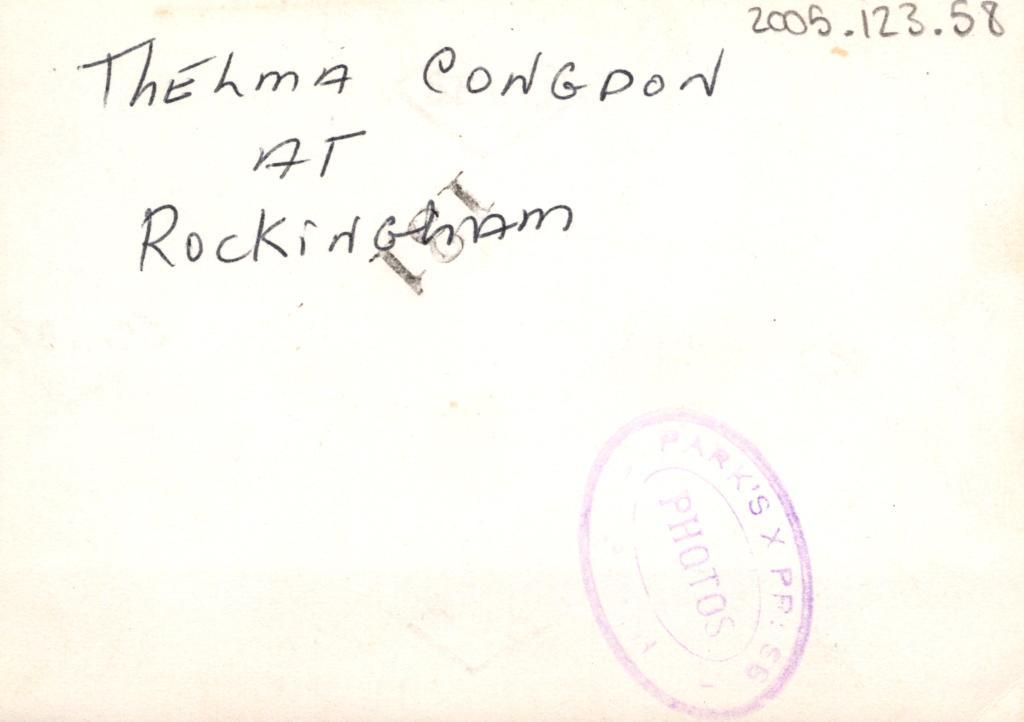 2005.123.58
THELMA CONGDON
AT
ROCKINGHAM
PARK'S X PR
PHOTOS